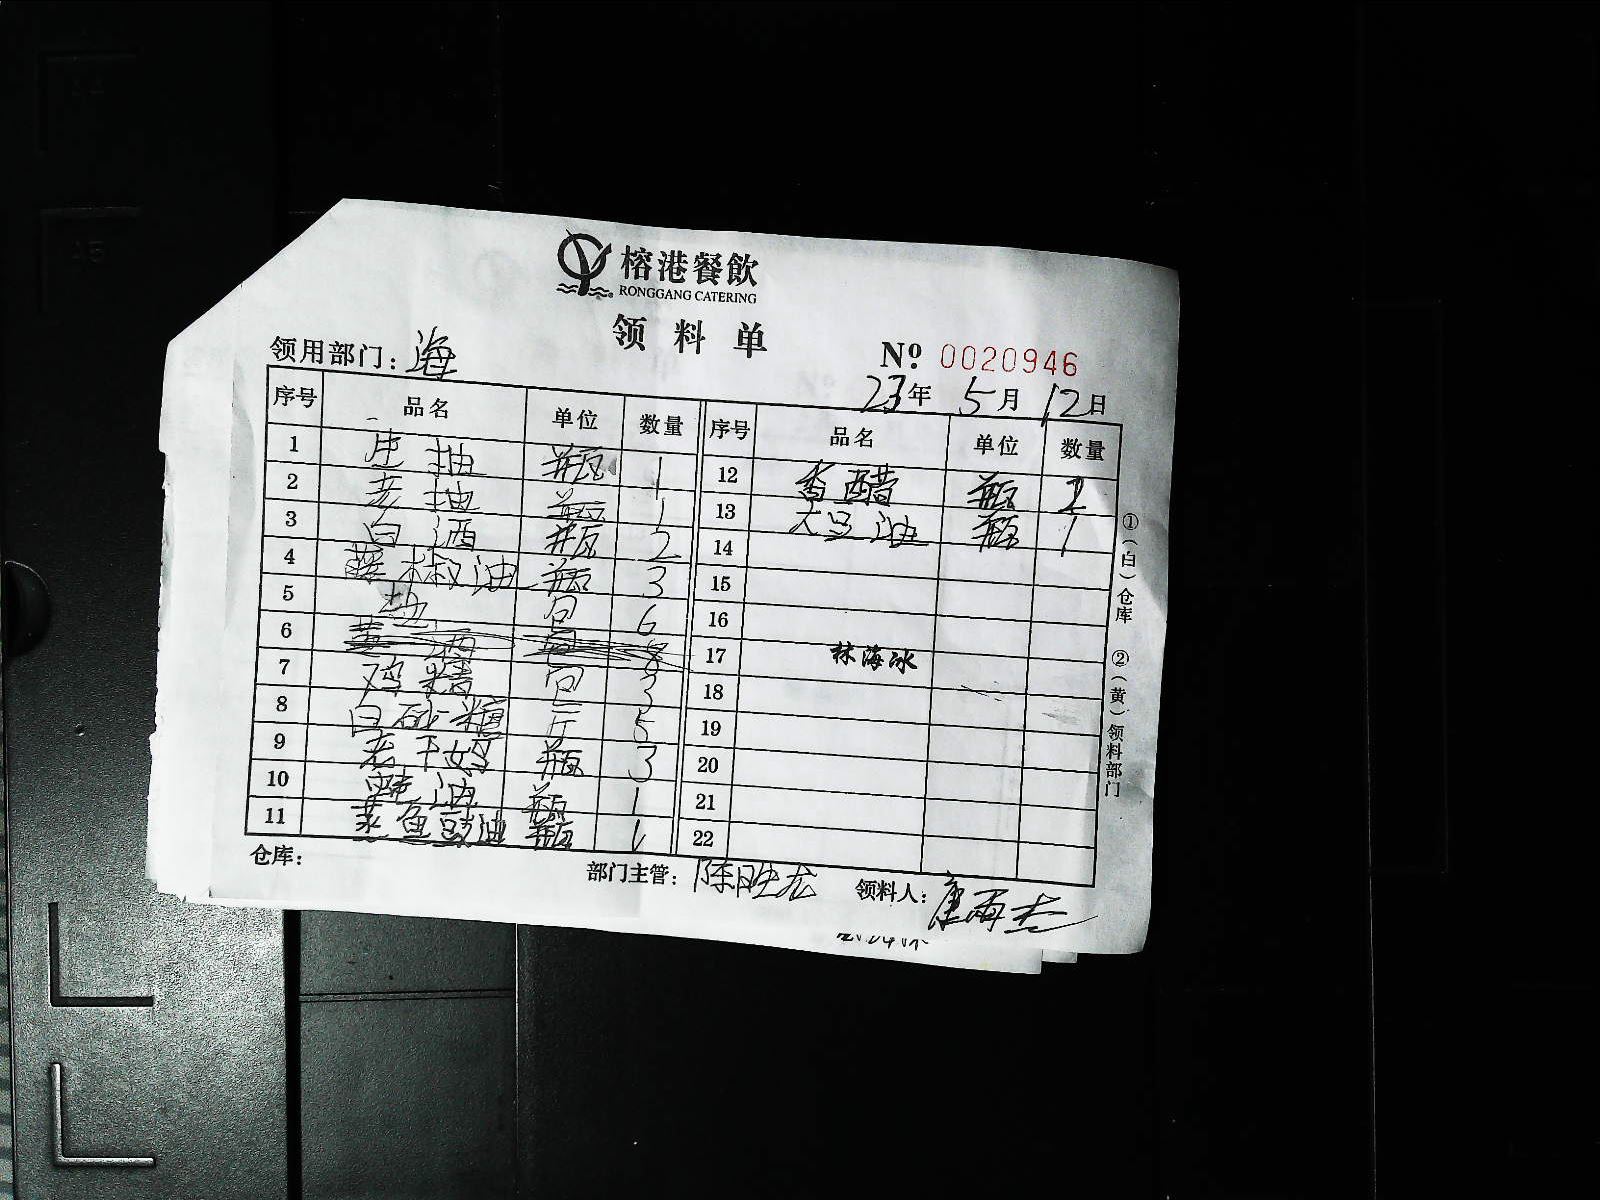 榕港餐飲
RONGGANG CATERING
领料单
领用部门：海
Nº 0020946
23年5月12日
序号 品名 单位 数量 序号 品名 单位 数量
1 生油 瓶 1 12 香醋 瓶 2
2 老油 瓶 1 13 大豆油 瓶 1
3 白酒 瓶 2 14
4 藤椒油 瓶 3 15
5 盐 包 6 16
6 17 林海冰
7 鸡精 包 3 18
8 白砂糖 斤 5 19
9 老干妈 瓶 3 20
10 蚝油 瓶 1 21
11 蒸鱼豉油 瓶 1 22
①（白）仓库 ②（黄）领料部门
仓库： 部门主管：陈胜龙 领料人：